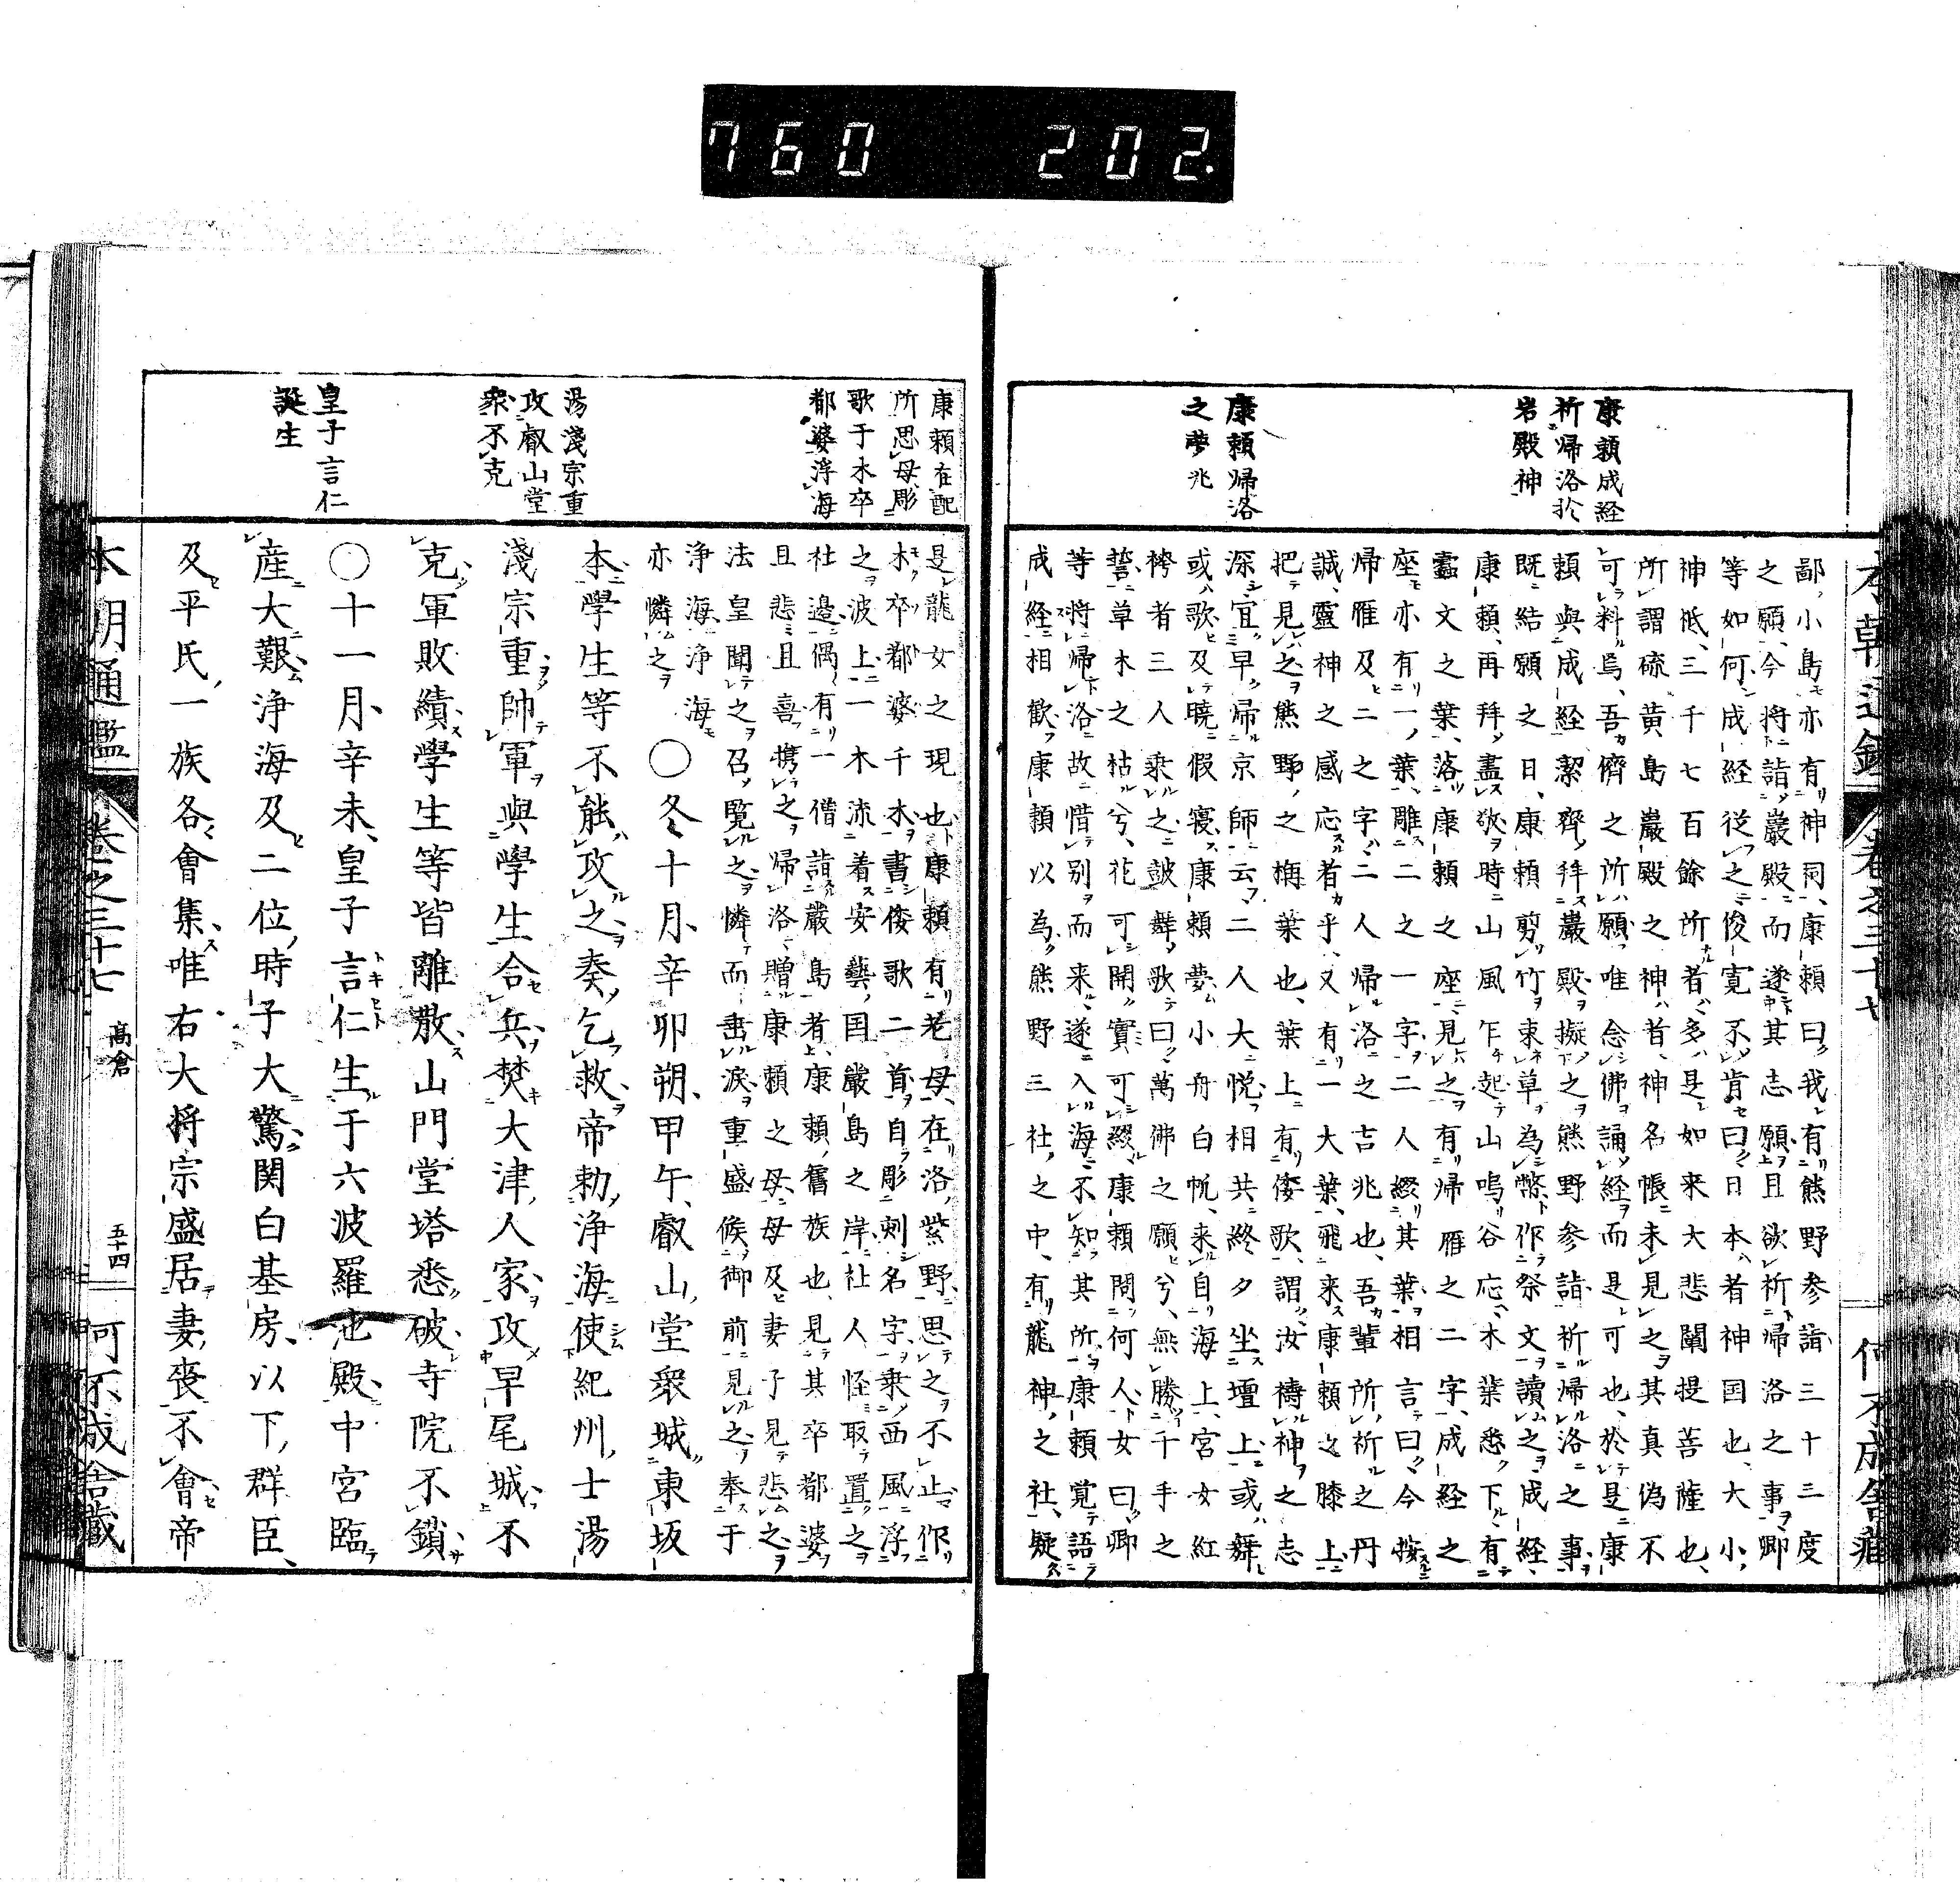 760 202.
康頼成経
祈帰洛於
岩殿神
康頼帰洛
之夢兆
鄙小島亦有神祠康頼曰我有熊野参詣三十三度
之願今将詣巌殿而遂其志願且欲祈帰洛之事卿
等如何成経従之俊寛不肯曰日本者神国也大小
神祇三千七百餘所者多是如来大悲闡提善薩也
所謂硫黄島巌殿之神者神名帳未見之其真偽不
可料焉吾儕之所願唯念佛誦経而是可也於是康
頼與成経潔齊拜巌殿擬之熊野参詣祈帰洛之事
既結願之日康頼剪竹束草為幣作祭文讀之成経
康頼再拜盡敬時山風乍起山鳴谷応木葉悉下有
蠹文之葉落康頼之座見之有帰雁之二字成経之
座亦有一葉雕二之一字二人綴其葉相言曰今按
帰雁及二之字二人帰洛之吉兆也吾輩所祈之丹
誠靈神之感応者乎又有一大葉飛来康頼之膝上
把見之熊野之梛葉也葉上有倭歌謂汝祷神之志
深宜早帰京師云二人大悦相共終夕坐壇上或舞
或歌及曉假寝康頼夢小舟白帆来自海上宮女紅
袴者三人乗之鼓舞歌曰萬佛之願兮無勝千手之
誓草木之枯兮花可開實可綴康頼問何人女曰卿
等将帰洛故惜別而来遂入海不知其所康頼覚語
成経相歡康頼以為熊野三社之中有龍神之社疑
本朝通鑑 巻之三十七
康頼在配
所思母彫
歌于木卒
都婆浮海
湯淺宗重
攻叡山堂
衆不克
皇子言仁
誕生
是龍女之現也康頼有老母在洛紫野思之不止作
木卒都婆千本書倭歌二首自彫刻名字乗西風浮
之波上一木流着安藝国嚴島之岸社人怪取置之
社邉偶有一僧詣嚴島者康頼舊族也見其卒都婆
且悲且喜携之帰洛贈康頼之母母及妻子見悲之
法皇聞之召覧之憐而垂涙重盛候御前見之奉于
浄海浄海亦憐之
〇冬十月辛卯朔甲午叡山堂衆城東坂
本學生等不能攻之奏乞救帝勅浄海使紀州士湯
淺宗重帥軍與學生合兵焚大津人家攻早尾城不
克軍敗績學生等皆離散山門堂塔悉破寺院不鎖
〇十一月辛未皇子言仁生于六波羅池殿中宮臨
産大艱浄海及二位時子大驚関白基房以下群臣
及平氏一族各會集唯右大将宗盛居妻喪不會帝
本朝通鑑 巻之三十七 高倉 五十四